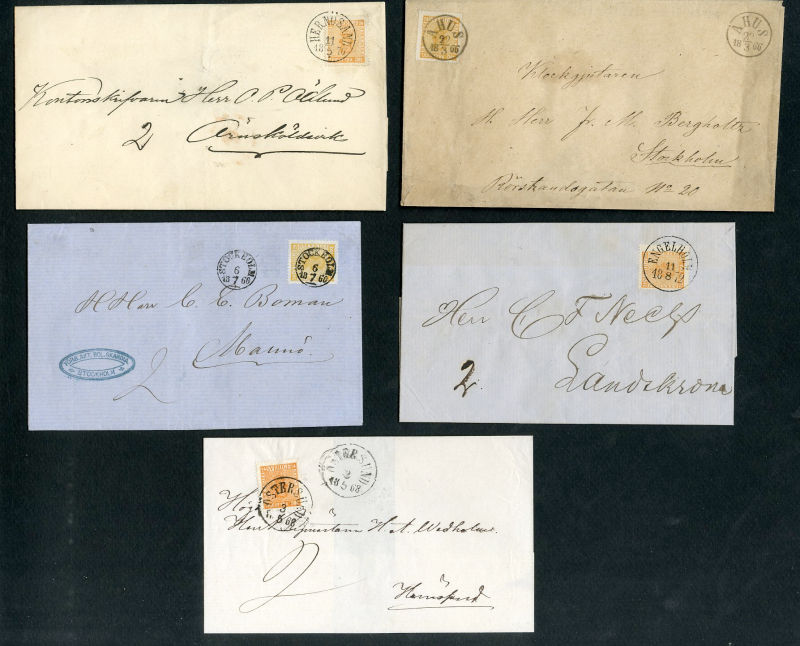 HERNÖSAND
11
18 5 70
Kontorsskrifvaren Herr O. P. Ödlund
2 Örnsköldsvik
ÅHUS
22
18 3 66
ÅHUS
22
18 3 66
Klockgjutaren
H. Herr Jr. M. Bergholtz
Stockholm
Rörstrandsgatan No 20
STOCKHOLM
6
18 7 60
STOCKHOLM
6
18 7 60
H Herr C. E. Boman
2
STOCKHOLM
ENGELHOLM
11
18 8 72
Herr C F Neess
2. Landskrona
ÖSTERSUND
2
18 5 68
ÖSTERSUND
2
5 68
Herr H. A. Wedholm.
2
Hernösand